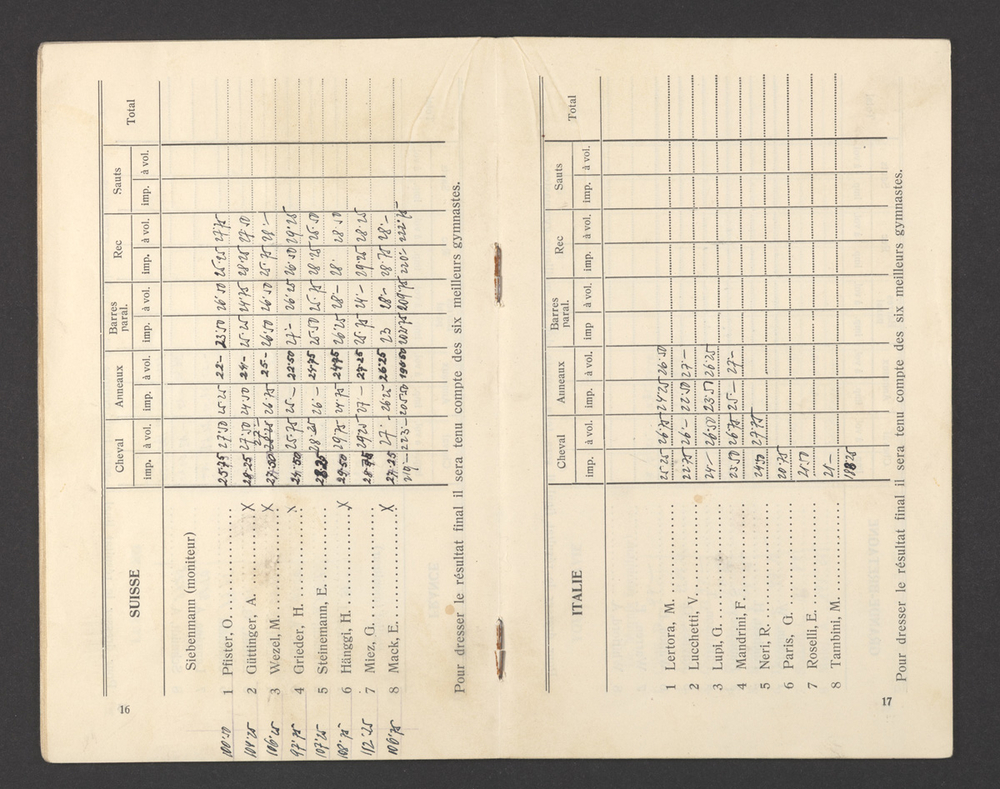 16
SUISSE
Cheval Anneaux Barres paral. Rec Sauts Total
imp. à vol. imp. à vol. imp à vol. imp. à vol. imp. à vol.
Siebenmann (moniteur)
1 Pfister, O. 25.75 27.50 25.25 22.- 23.50 26.50 25.25 27.75
2 Güttinger, A. X 28.25 27.50 24.50 24.- 25.25 24.75 28.25 27.50
3 Wezel, M. X 27.50 26.75 25.- 26.50 26.50 25.75 28.-
4 Grieder, H. X 24.50 25.75 25.- 22.50 27.- 26.25 26.50 29.25
5 Steinemann, E. 28.25 28.25 26.- 24.75 25.50 25.75 28.25 25.50
6 Hänggi, H. X 29.50 29.75 24.75 24.75 26.25 28.- 28. 28.50
7 Miez, G. 28.75 29.25 27.- 27.25 25.75 24.- 29.25 28.25
8 Mack, E. X 27.25 27. 26.25 26.25 23 28.- 28.75 28.-
Pour dresser le résultat final il sera tenu compte des six meilleurs gymnastes.
ITALIE
Cheval Anneaux Barres paral. Rec Sauts Total
imp. à vol. imp. à vol. imp à vol. imp. à vol. imp. à vol.
1 Lertora, M. 25.25 26.75 24.25 26.50
2 Lucchetti, V. 22.75 26.- 22.50 27.-
3 Lupi, G. 24.- 26.50 23.50 26.25
4 Mandrini, F. 23.50 26.75 25.- 27.-
5 Neri, R. 24.50 27.75
6 Paris, G. 20.75
7 Roselli, E. 21.50
8 Tambini, M. 21.-
Pour dresser le résultat final il sera tenu compte des six meilleurs gymnastes.
17